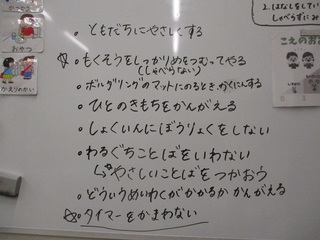 おやつ
かえりのかい
2.はなしをしてい
しゃべらずにみ
こえのおお
・ともだちにやさしくする
☆もくそうをしっかりめをつむってやる
(しゃべらない)
・ボルダリングのマットにのるとき、かくにんする
・ひとのきもちをかんがえる
・しょくいんにぼうりょくをしない
・わるぐちことばをいわない
↳やさしいことばをつかおう
・どういうめいわくがかかるかかんがえる
☆タイマーをかまわない